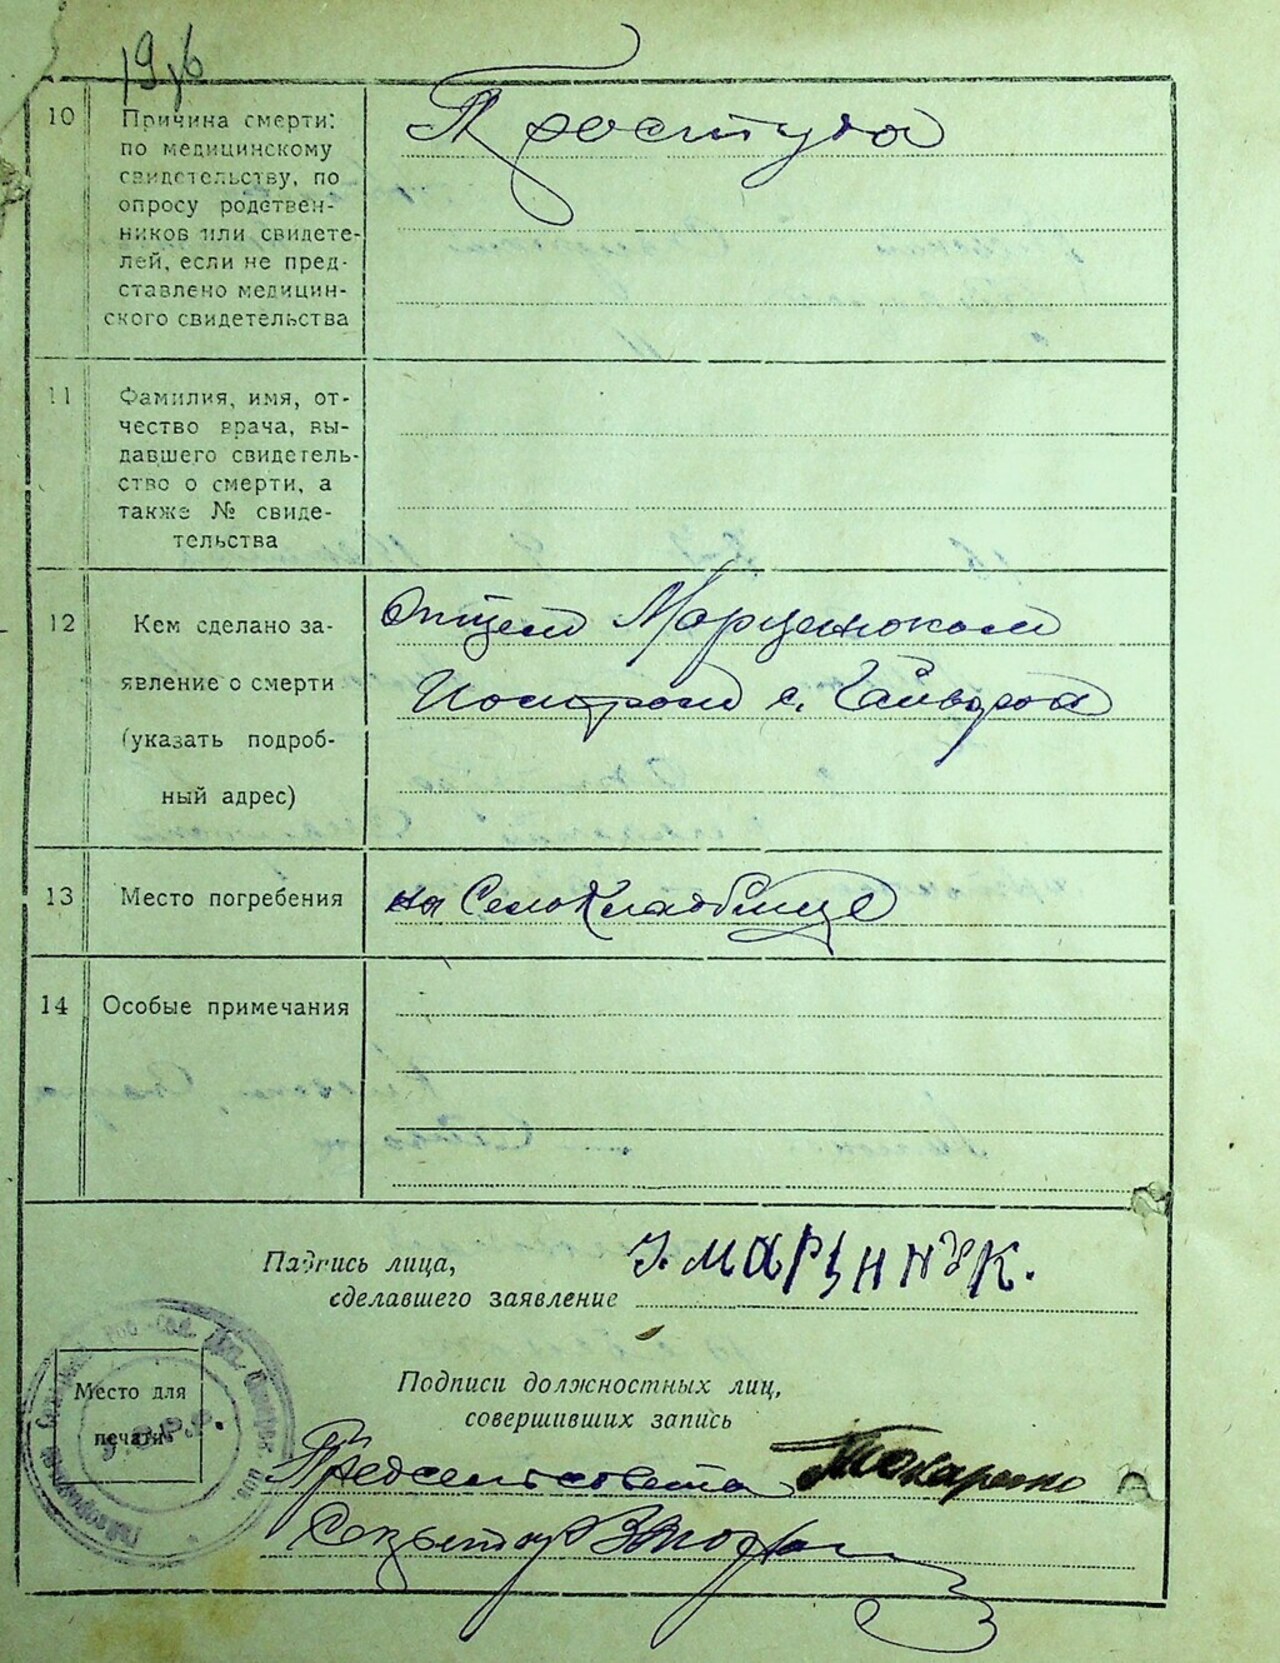 10
Причина смерти:
по медицинскому
свидетельству, по
опросу родствен-
ников или свидете-
лей, если не пред-
ставлено медицин-
ского свидетельства
Простуда
11
Фамилия, имя, от-
чество врача, вы-
давшего свидетель-
ство о смерти, а
также № свиде-
тельства
12
Кем сделано за-
явление о смерти
(указать подроб-
ный адрес)
Отцем Марценюком
с. Гайворон
13
Место погребения
на Селокладбище
14
Особые примечания
Падпись лица,
сделавшего заявление
У. МАРЦИНЮК.
Место для
печати
Подписи должностных лиц,
совершивших запись
Предсельсовета Токаренко